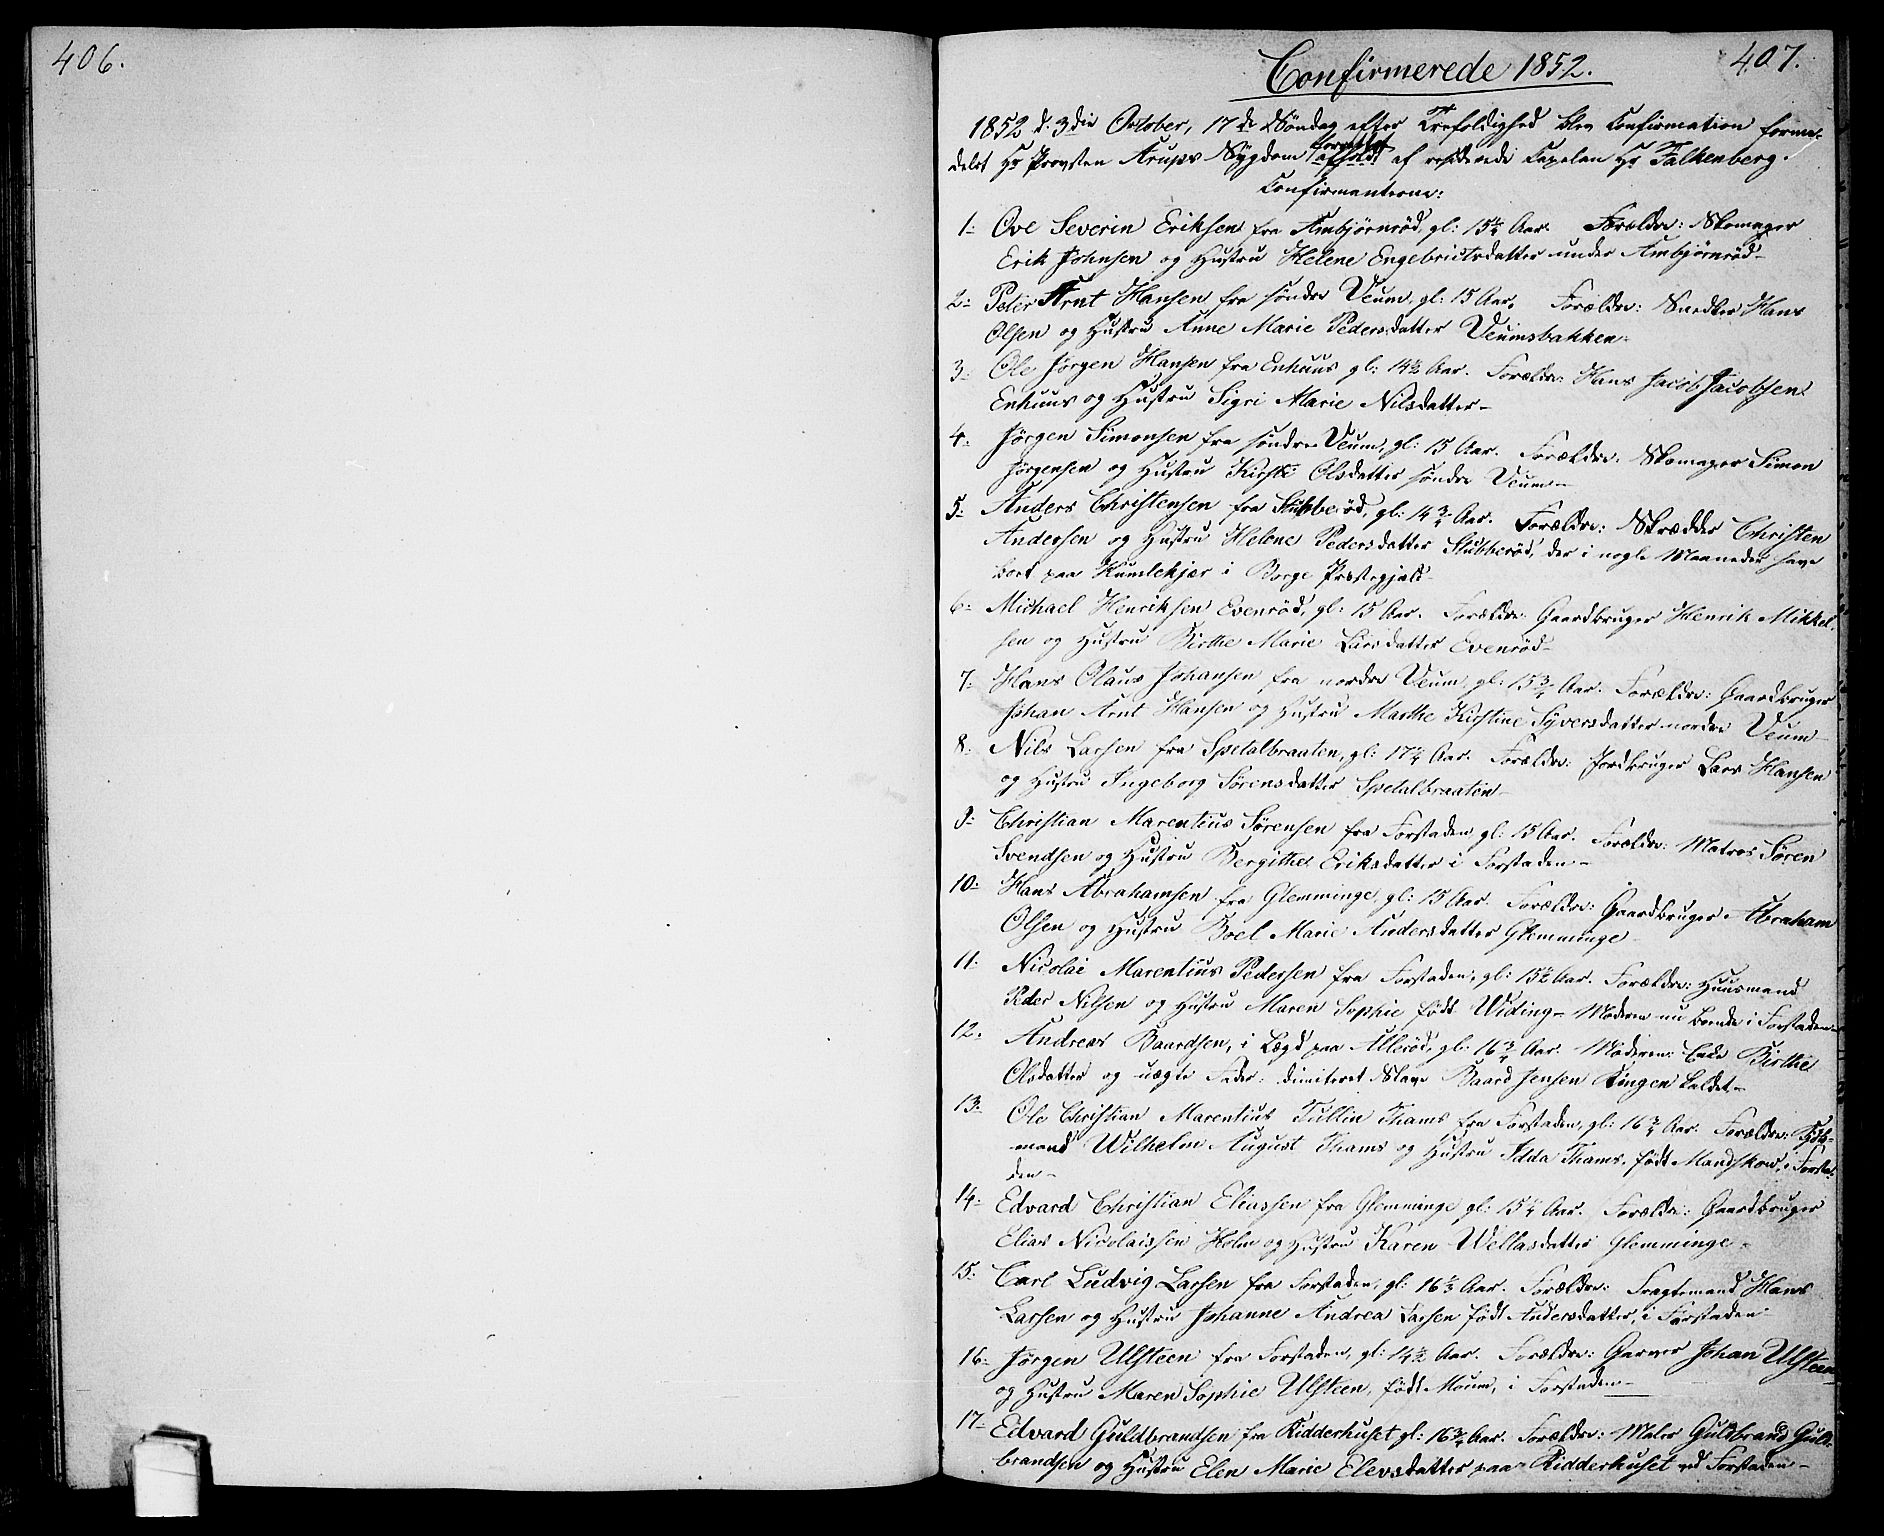 406.
407.
Confirmerede 1852.
1852 d. 3die October, 17de Søndag efter Trefoldighed blev Confirmation forme-
delst Hr Provsten Arups Sygdom forrettet af residerende Capelan Hr Falkenberg.
Confirmanterne:
1. Ove Severin Eriksen fra Ambjørnrød, gl: 15¼ Aar. Forældre: Skomager
Erik Johnsen og Hustru Helene Engebrictsdatter under Ambjørnrød-
2. Peter Arnt Hansen fra søndre Veum, gl: 15 Aar. Forældre: Snedker Hans
Olsen og Hustru Anne Marie Pedersdatter Veumsbakken.
3. Ole Jørgen Hansen fra Enhuus gl: 14½ Aar. Forældre: Hans Jacob Jacobsen
Enhuus og Hustru Sigri Marie Nilsdatter-
4. Jørgen Simonsen fra søndre Veum, gl: 15 Aar. Forældre: Skomager Simon
Jørgensen og Hustru Kirsti Olsdatter søndre Veum-
5. Anders Christensen fra Stubberød, gl: 14¾ Aar. Forældre: Skrædder Christen
Andersen og Hustru Helene Pedersdatter Stubberød, der i nogle Maaneder have
boet paa Humlekjær i Borge Præstegjæld-
6. Michael Henriksen Evenrød, gl: 15 Aar. Forældre: Gaardbruger Henrik Mikkel-
sen og Hustru Birthe Marie Larsdatter Evenrød-
7. Hans Olaus Johansen fra nordre Veum, gl: 15¾ Aar. Forældre: Gaardbruger
Johan Arnt Hansen og Hustru Marthe Kirstine Syversdatter nordre Veum-
8. Nils Larsen fra Spetalbraaten, gl: 17¼ Aar. Forældre: Jordbruger Lars Hansen
og Hustru Ingeborg Sørensdatter Spetalbraaten-
9. Christian Marentius Sørensen fra Forstaden, gl: 15 Aar. Forældre: Matros Søren
Svendsen og Hustru Bergithe Eriksdatter i Forstaden-
10. Hans Abrahamsen fra Glemminge, gl: 15 Aar. Forældre: Gaardbruger Abraham
Olsen og Hustru Boel Marie Andersdatter Glemminge-
11. Nicolai Marentius Pedersen fra Forstaden, gl: 15½ Aar. Forældre: Huusmand
Peder Nilsen og Hustru Maren Sophie født Widing- Moderen nu boende i Forstaden-
12. Andreas Baardsen, i Lægd paa Allerød, gl: 16¾ Aar. Moderen: Birthe
Olsdatter og uægte Fader: dimiteret Slave Baard Jensen Ringen kaldet-
13. Ole Christian Marentius Tullin Thams fra Forstaden, gl: 16¾ Aar. Forældre:
mand Wilhelm August Thams og Hustru Idda Thams, født Mandskow, i Forsta-
den-
14. Edvard Christian Eliassen fra Glemminge gl: 15¼ Aar. Forældre: Gaardbruger
Elias Nicolaissen Holm og Hustru Karen Wellasdatter Glemminge-
15. Carl Ludvig Larsen fra Forstaden, gl: 16½ Aar. Forældre: Fragtemand Hans
Larsen og Hustru Johanne Andrea Larsen født Andersdatter, i Forstaden-
16. Jørgen Ulsteen fra Forstaden, gl: 14½ Aar. Forældre: Garver Johan Ulsteen
og Hustru Maren Sophie Ulsteen, født Moum, i Forstaden-
17. Edvard Guldbrandsen fra Ridderhuset gl: 16¾ Aar. Forældre: Maler Guldbrand Guld-
brandsen og Hustru Elen Marie Elevsdatter paa Ridderhuset ved Forstaden-